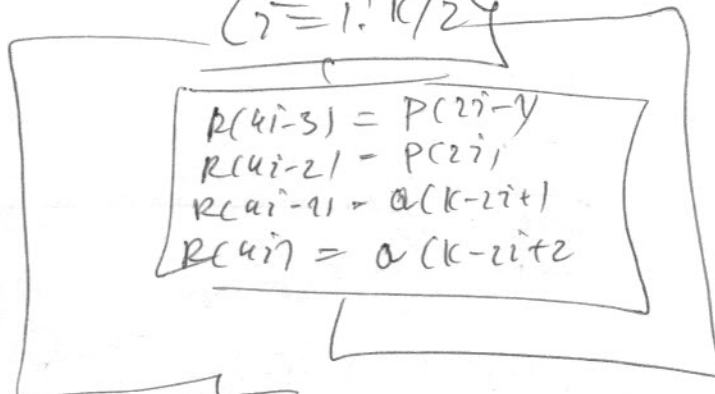 (i=1: K/2)
R(4i-3) = P(2i-1)
R(4i-2) = P(2i)
R(4i-1) = Q(K-2i+1
R(4i) = Q(K-2i+2